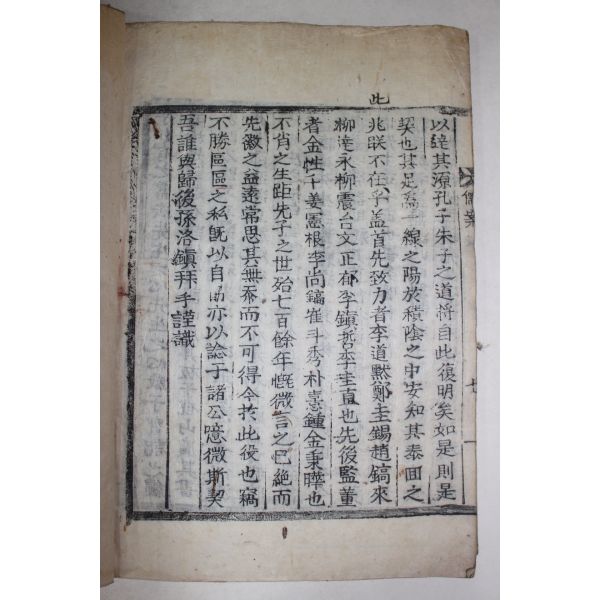 此
以達其源孔子朱子之道將自此復明矣如是則是
契也其足爲一線之陽於積陰之中安知其泰回之
兆眹不在乎盖首先致力者李道黙鄭圭錫趙鎬來
柳達永柳震台文正郁李鎭哲李圭直也先後監董
者金性千姜憲根李尚鎬崔斗秀朴憙鍾金秉曄也
不肖之生距先子之世殆七百餘年慨微言之已絶而
先徽之益遠常思其無忝而不可得今於此役也竊
不勝區區之私旣以自勗亦以諗于諸公噫微斯契
吾誰與歸後孫洛鎭拜手謹識